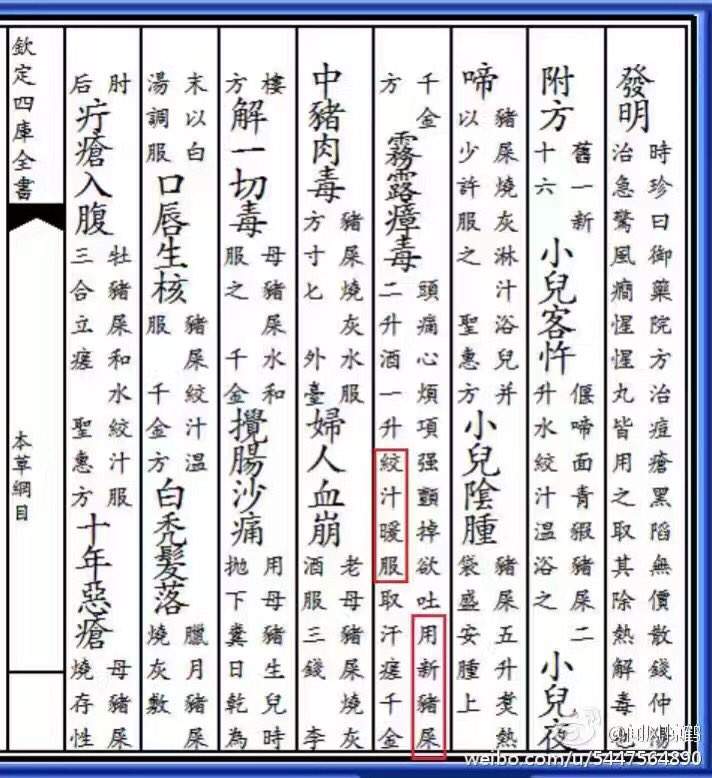 發明 時珍曰御藥院方治痘瘡黑陷無價散錢仲陽治急驚風癎惺惺丸皆用之取其除熱解毒也
附方 舊一新十六 小兒客忤 偃啼面青豭豬屎二升水絞汁温浴之 小兒夜
啼 豬屎燒灰淋汁浴兒并以少許服之 聖惠方 小兒陰腫 豬屎五升煑熱袋盛安腫上
千金方 霧露瘴毒 頭痛心煩項强顫掉欲吐用新豬屎二升酒一升絞汁暖服取汗瘥千金
中豬肉毒 豬屎燒灰水服方寸匕 外臺 婦人血崩 老母豬屎燒灰酒服三錢 李
樓方 解一切毒 母豬屎水和服之 千金 攪腸沙痛 用母豬生兒時抛下糞日乾為
末以白湯調服 口唇生核 豬屎絞汁温服 千金方 白禿髮落 臘月豬屎燒灰敷
肘后 疔瘡入腹 牡豬屎和水絞汁服三合立瘥 聖惠方 十年惡瘡 母豬屎燒存性
欽定四庫全書
本草綱目
weibo.com/u/5447564890